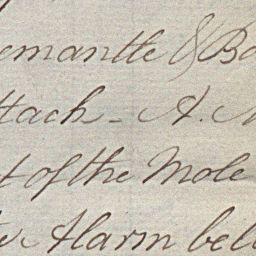 emantle & Ba
ttach - A. M
t of the Mole
Alarm bell